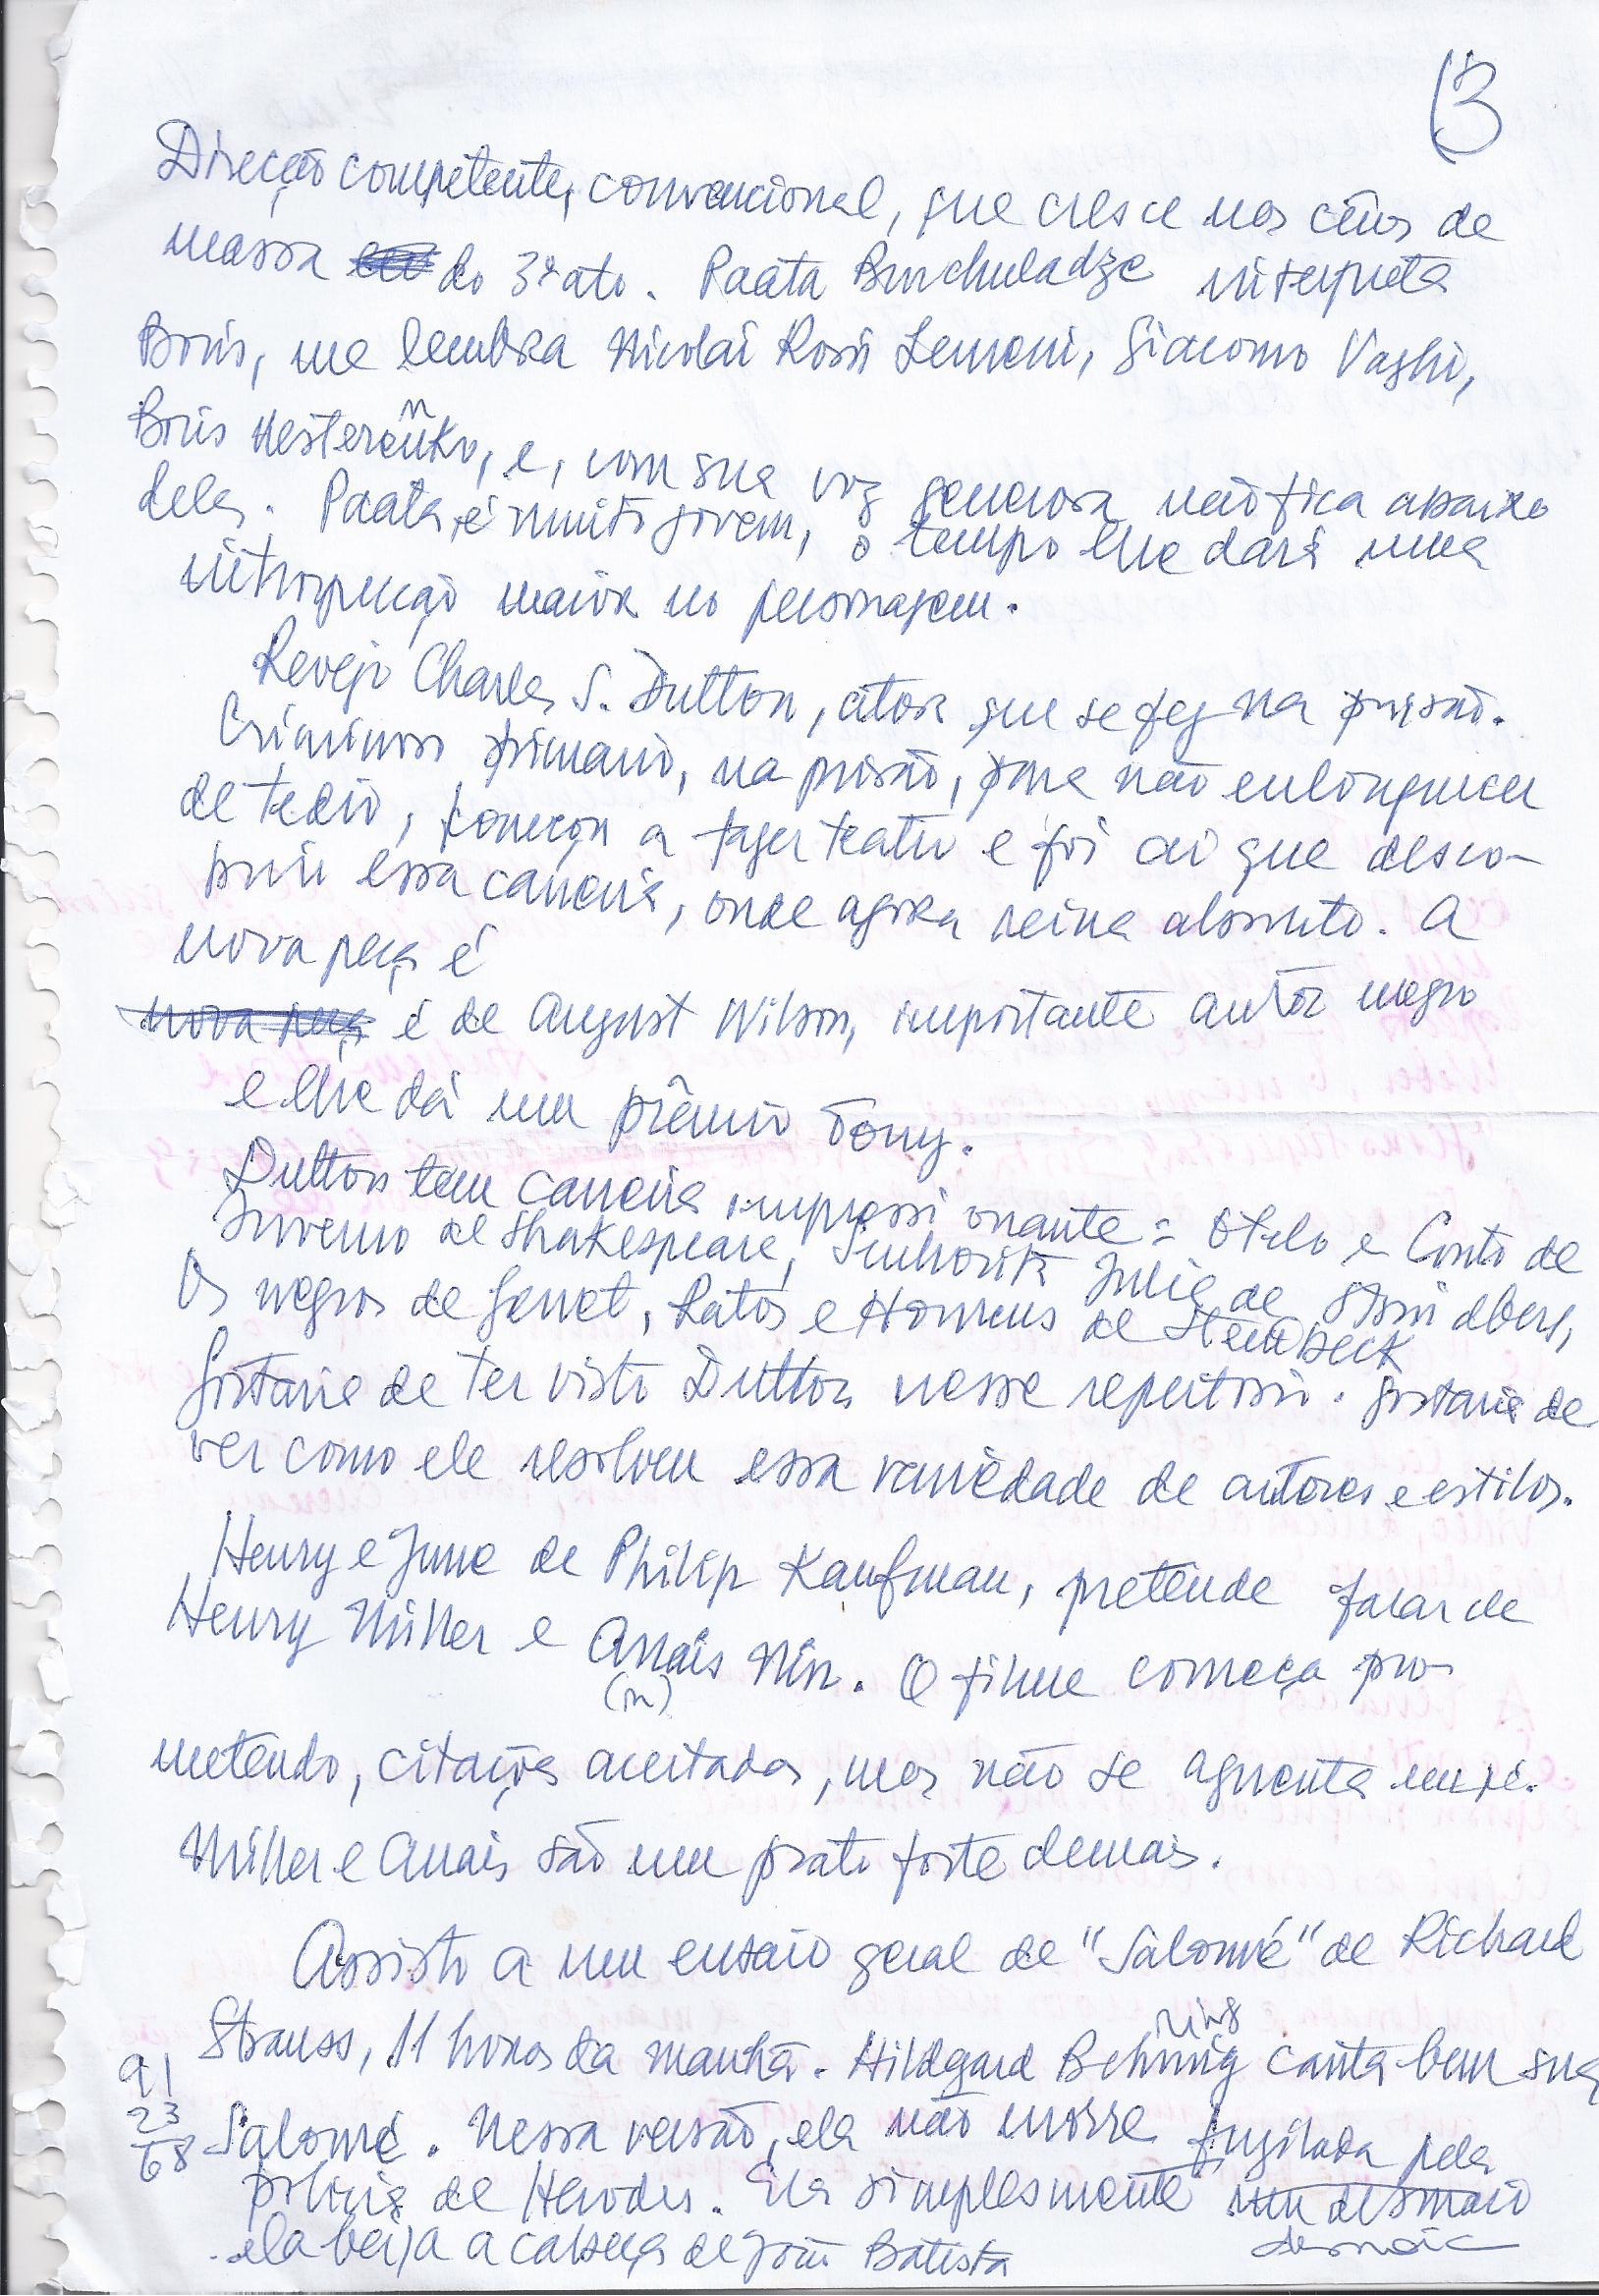 13
Direção competente, convencional, que cresce nas cenas de
massa do 3º ato. Paata Burchuladze interpreta
Boris, me lembra Nicolai Rossi Lemeni, Giacomo Vaghi,
Boris Hesterenko, e, com sua voz generosa não fica abaixo
deles. Paata, é muito jovem, o tempo lhe dará uma
introspecção maior no personagem.
Revejo Charles S. Dutton, ator que se fez na prisão.
Criminoso primario, na prisão, para não enlouquecer
de tedio, começou a fazer teatro e foi aí que desco-
briu essa carreira, onde agora reina absoluto. A
nova peça é
nova peça é de August Wilson, importante autor negro
e lhe dá um prêmio Tony.
Dutton tem carreira impressionante = Otelo e Conto de
Inverno de Shakespeare, Senhorita Julie de Strindberg,
Os negros de Genet, Ratos e Homens de Steinbeck
Gostaria de ter visto Dutton nesse repertorio. Gostaria de
ver como ele resolveu essa variedade de autores e estilos.
Henry e June de Philip Kaufman, pretende falar de
Henry Miller e Anais Nin. O filme começa pro-
(n)
metendo, citações acertadas, mas não se aguenta em pé.
Miller e Anais são um prato forte demais.
Assisto a um ensaio geral de "Salomé" de Richard
Strauss, 11 horas da manhã. Hildgard Behrnig canta bem sua
Salomé. Nessa versão, ela não morre fuzilada pela
policia de Herodes. Ela simplesmente num desmaio
ela beija a cabeça de João Batista
91
23
68